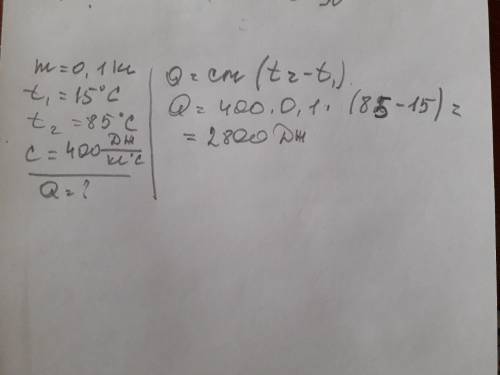 m = 0,1 кг
t₁ = 15°C
t₂ = 85°C
c = 400 Дж/кг°C
Q = ?
Q = cm (t₂ - t₁).
Q = 400 . 0,1 . (85 - 15) =
= 2800 Дж